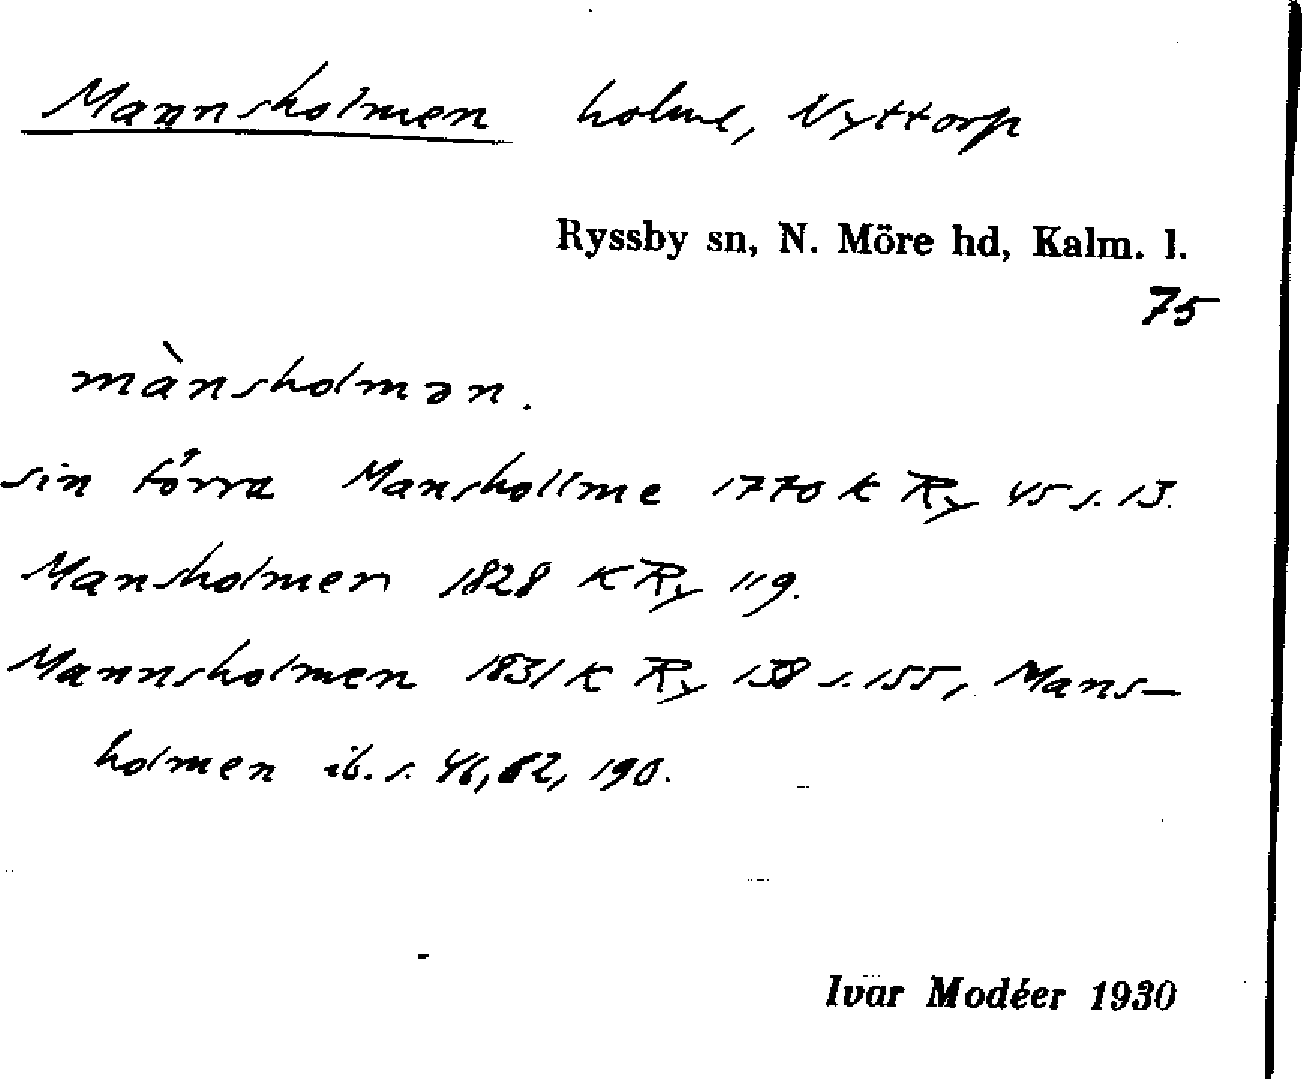 Mannsholmen holme, Nyttorp
Ryssby sn, N. Möre hd, Kalm. l.
75
mànsholmən.
sin törra Manshollme 1770 K Ry 45 s. 13.
Mansholmen 1828 K Ry 119.
Mannsholmen 1831 K Ry 138 s. 155, Mans-
holmen ib. s. 46, 62, 190.
Ivar Modéer 1930